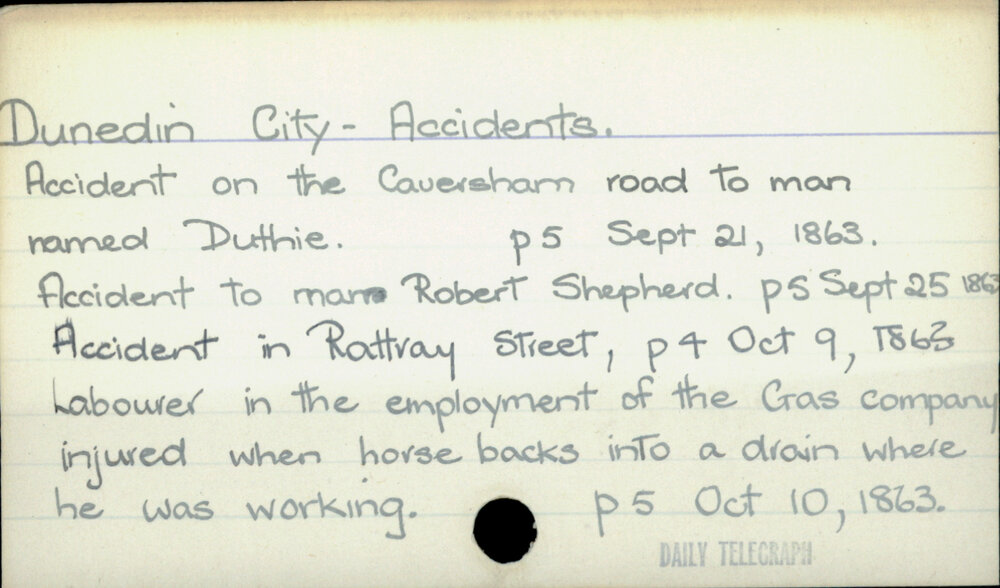 Dunedin City - Accidents.
Accident on the Caversham road to man
named Duthie. p5 Sept 21, 1863.
Accident to man Robert Shepherd. p5 Sept 25 1863
Accident in Rattray Street, p4 Oct 9, 1863
Labourer in the employment of the Gas company
injured when horse backs into a drain where
he was working. p5 Oct 10, 1863.
DAILY TELEGRAPH